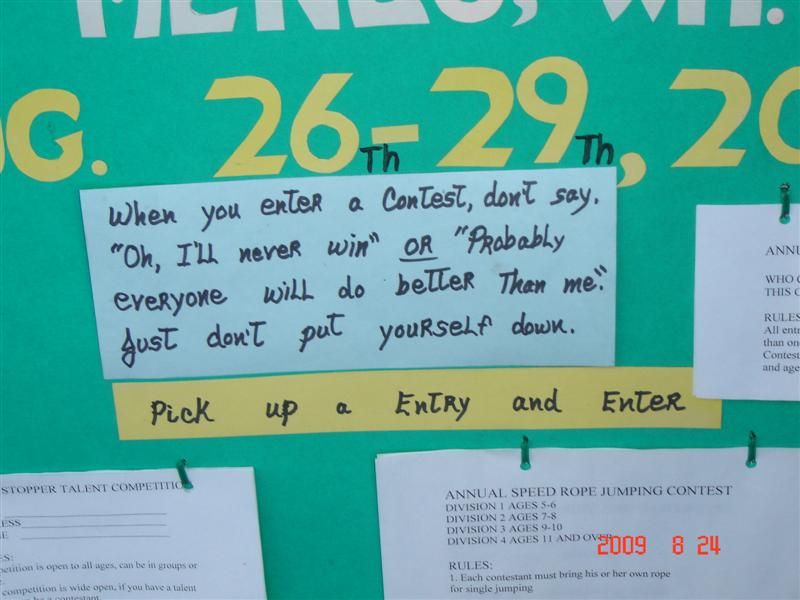 MENLO, WI.
UG. 26Th-29Th, 20
When you enter a Contest, don't say.
"Oh, I'll never win" OR "Probably
everyone will do better Than me".
Just don't put yourself down.
Pick up a Entry and Enter
ANNU
WHO C
THIS C
RULES
All entr
than on
Contest
and age
STOPPER TALENT COMPETITIO
ESS
E
ES:
petition is open to all ages, can be in groups or
competition is wide open, if you have a talent
ANNUAL SPEED ROPE JUMPING CONTEST
DIVISION 1 AGES 5-6
DIVISION 2 AGES 7-8
DIVISION 3 AGES 9-10
DIVISION 4 AGES 11 AND OVER
RULES:
1. Each contestant must bring his or her own rope
for single jumping
2009 8 24